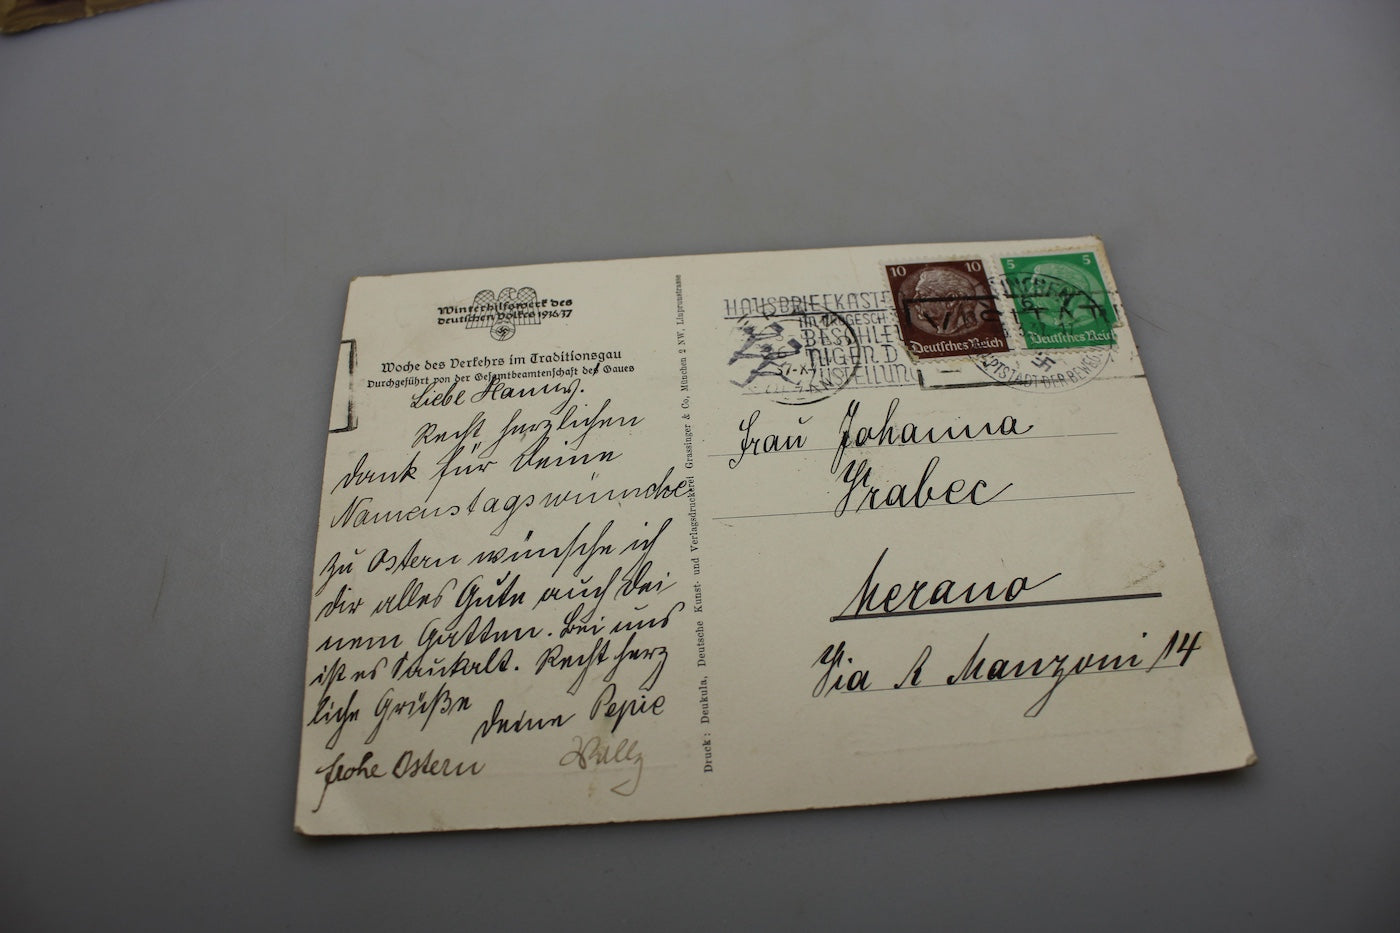 Winterhilfswerk des
deutschen Volkes 1936/37
Woche des Verkehrs im Traditionsgau
Durchgeführt von der Gesamtbeamtenschaft des Gaues
Liebe Hanny!
Recht herzlichen
Dank für Deine
Namenstagswünsche
Zu Ostern wünsche ich
Dir alles Gute auch Dei
nem Gatten. Bei uns
ist es Saukalt. Recht herz
liche Grüße
Deine Pepie
frohe Ostern Willy
Druck: Deukula, Deutsche Kunst- und Verlagsdruckerei Grassinger & Co, München 2 NW, Linprunstrasse
HAUSBRIEFKASTE
IM ERDGESCH
BESCHLE
NIGEN D
ZUSTELLUNG
10 10
Deutsches Reich
5 5
Deutsches Reich
MÜNCHEN
HAUPTSTADT DER BEWEG
Frau Johanna
Vrabec
Merano
Via A Manzoni 14